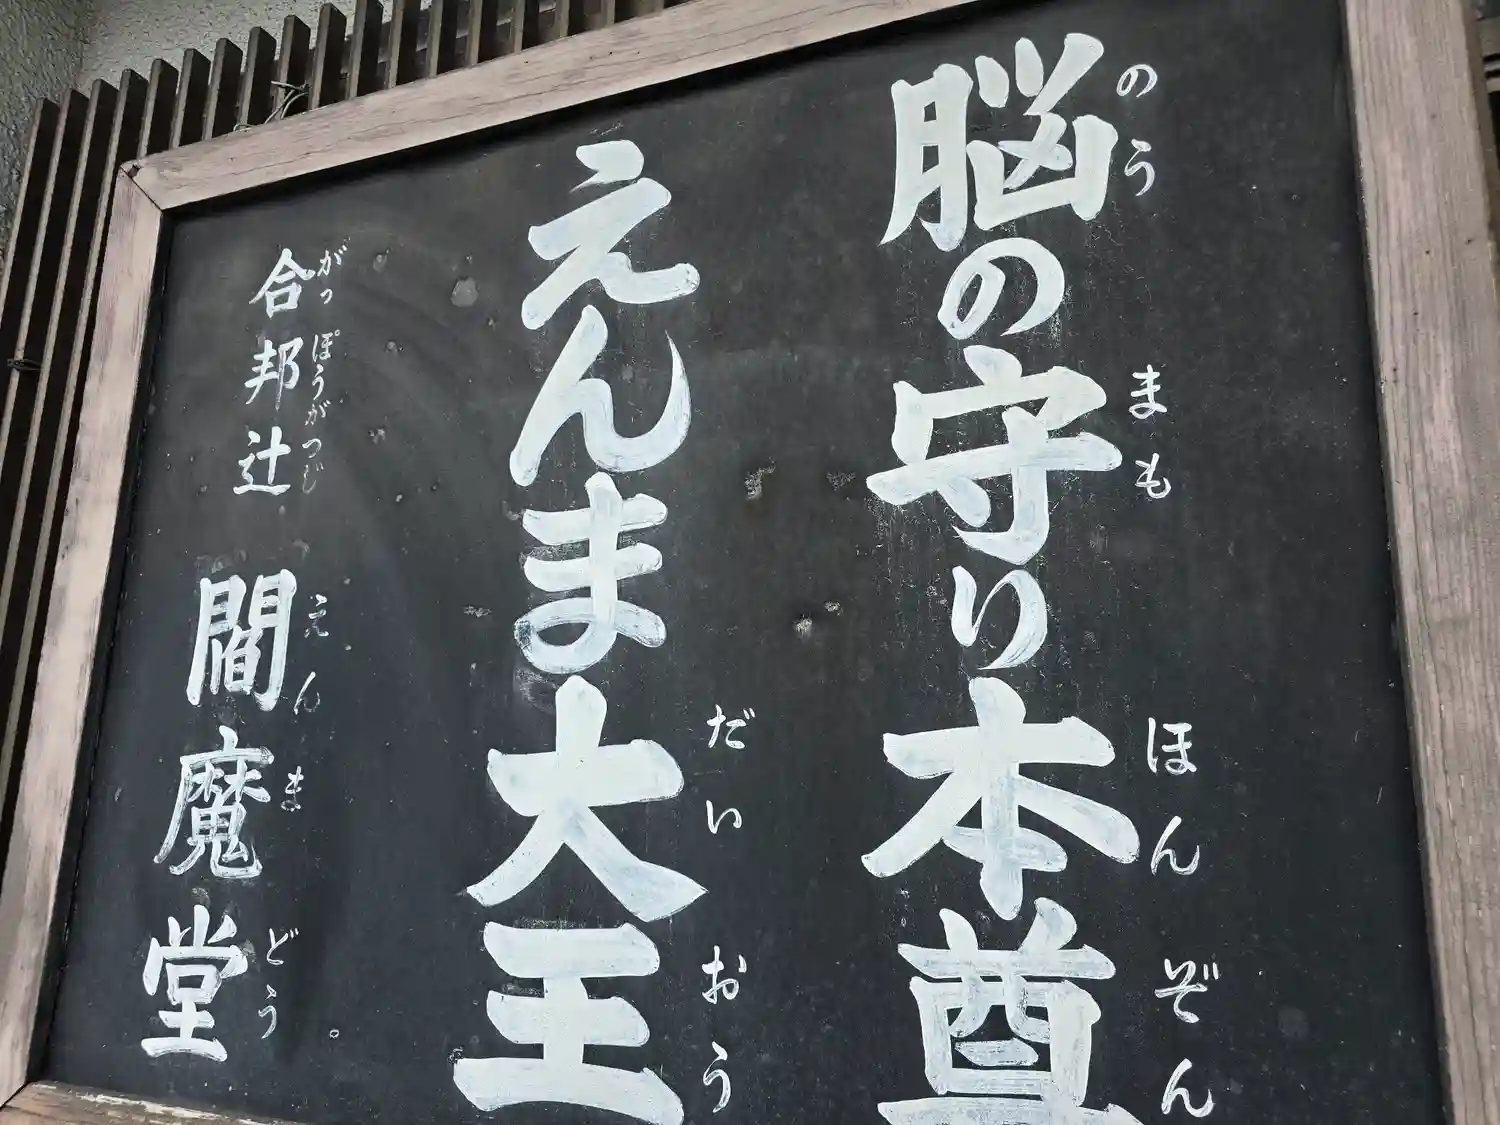 脳の守り本尊
のう
まも
ほんぞん
えんま大王
だいおう
合邦辻 閻魔堂
がっぽうがつじ
えんまどう